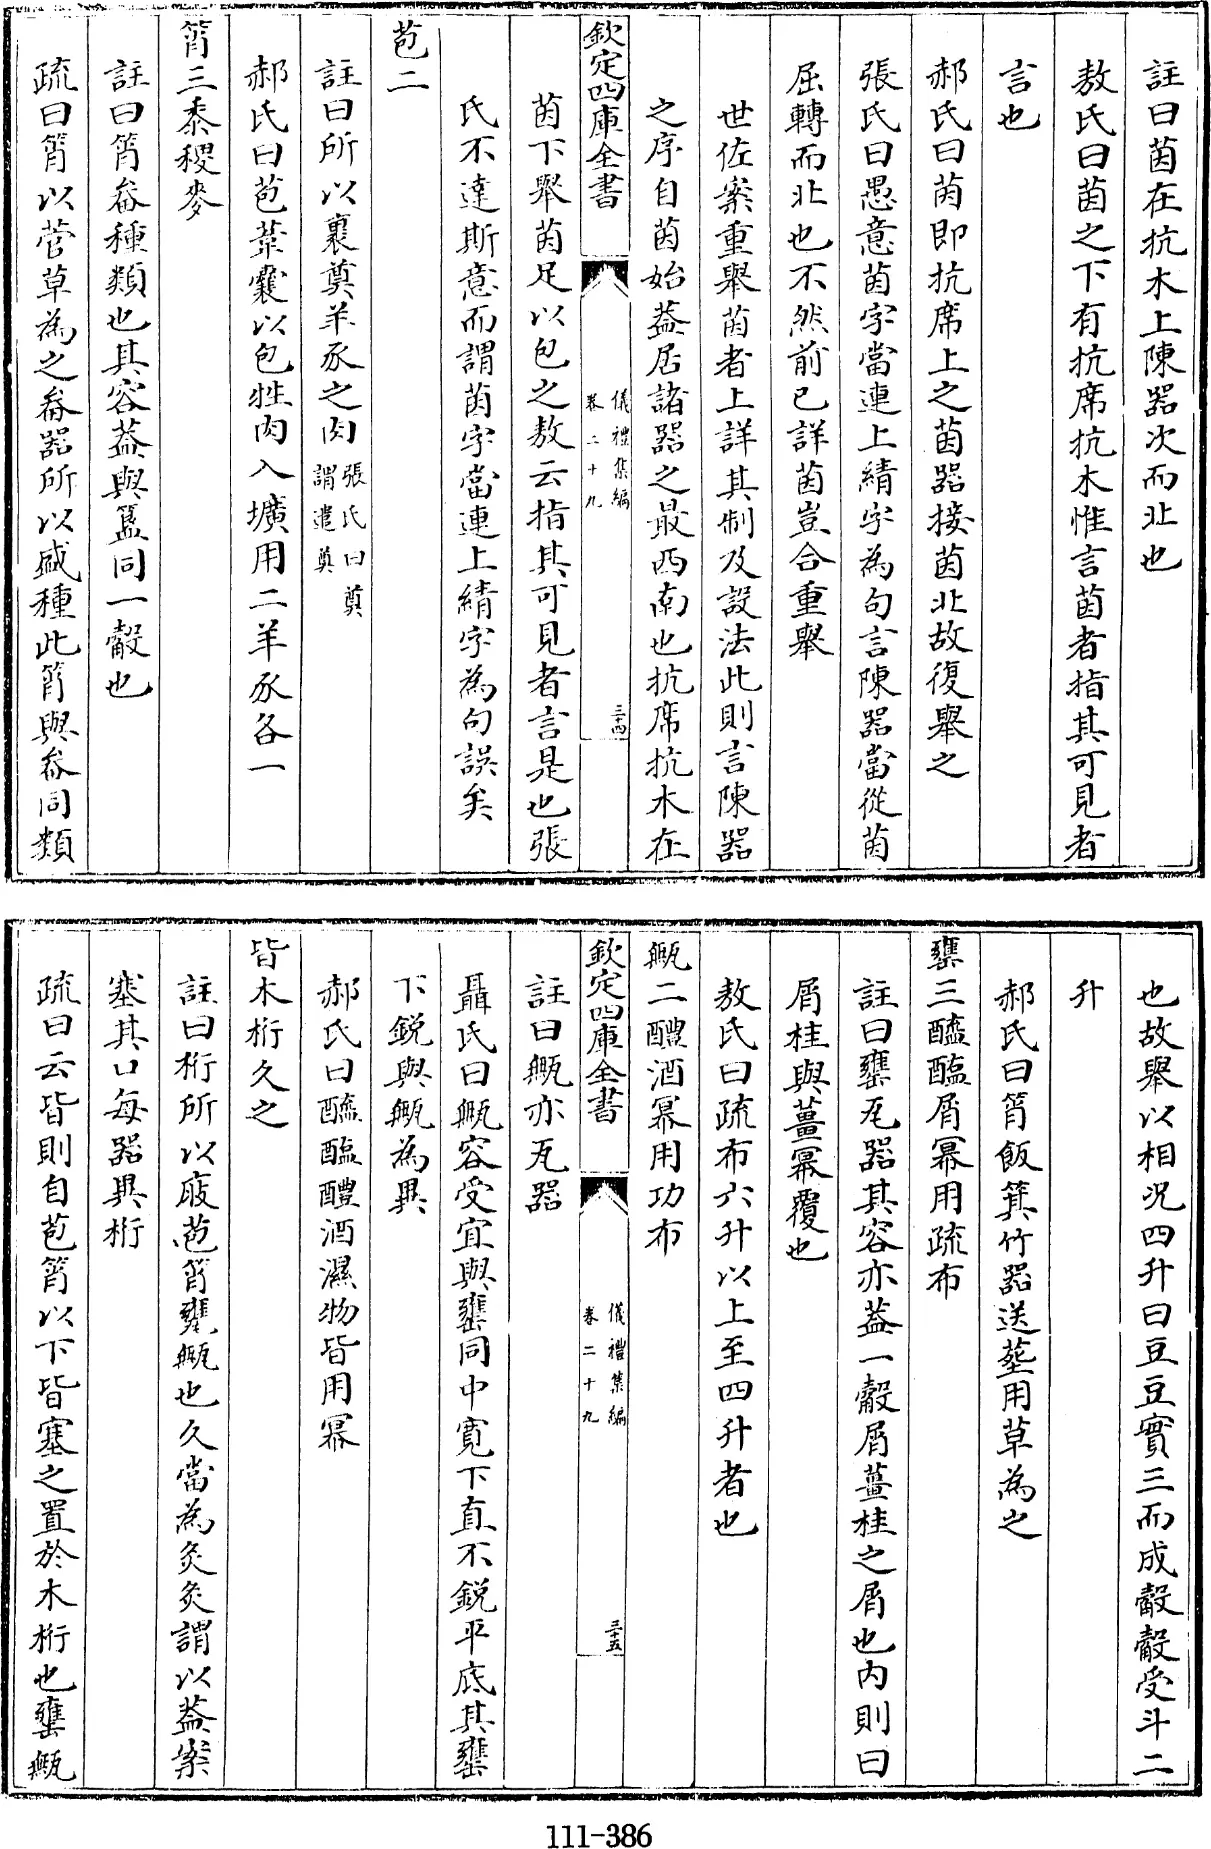 註曰茵在抗木上陳器次而北也
敖氏曰茵之下有抗席抗木惟言茵者指其可見者
言也
郝氏曰茵即抗席上之茵器接茵北故復舉之
張氏曰愚意茵字當連上綪字為句言陳器當從茵
屈轉而北也不然前已詳茵豈合重舉
世佐案重舉茵者上詳其制及設法此則言陳器
之序自茵始葢居諸器之最西南也抗席抗木在
欽定四庫全書
儀禮集編
卷二十九
三十四
茵下舉茵足以包之敖云指其可見者言是也張
氏不達斯意而謂茵字當連上綪字為句誤矣
苞二
註曰所以裹奠羊豕之肉張氏曰奠謂遣奠
郝氏曰苞葦囊以包牲肉入壙用二羊豕各一
筲三黍稷麥
註曰筲畚種類也其容葢與簋同一觳也
疏曰筲以菅草為之畚器所以盛種此筲與畚同類
也故舉以相況四升曰豆豆實三而成觳觳受斗二
升
郝氏曰筲飯箕竹器送葬用草為之
甕三醯醢屑冪用疏布
註曰甕瓦器其容亦葢一觳屑薑桂之屑也內則曰
屑桂與薑冪覆也
敖氏曰疏布六升以上至四升者也
甒二醴酒冪用功布
欽定四庫全書
儀禮集編
卷二十九
三十五
註曰甒亦瓦器
聶氏曰甒容受宜與甕同中寬下直不銳平底其甕
下銳與甒為異
郝氏曰醯醢醴酒濕物皆用冪
皆木桁久之
註曰桁所以庪苞筲甕甒也久當為灸灸謂以葢案
塞其口每器異桁
疏曰云皆則自苞筲以下皆塞之置於木桁也甕甒
111-386